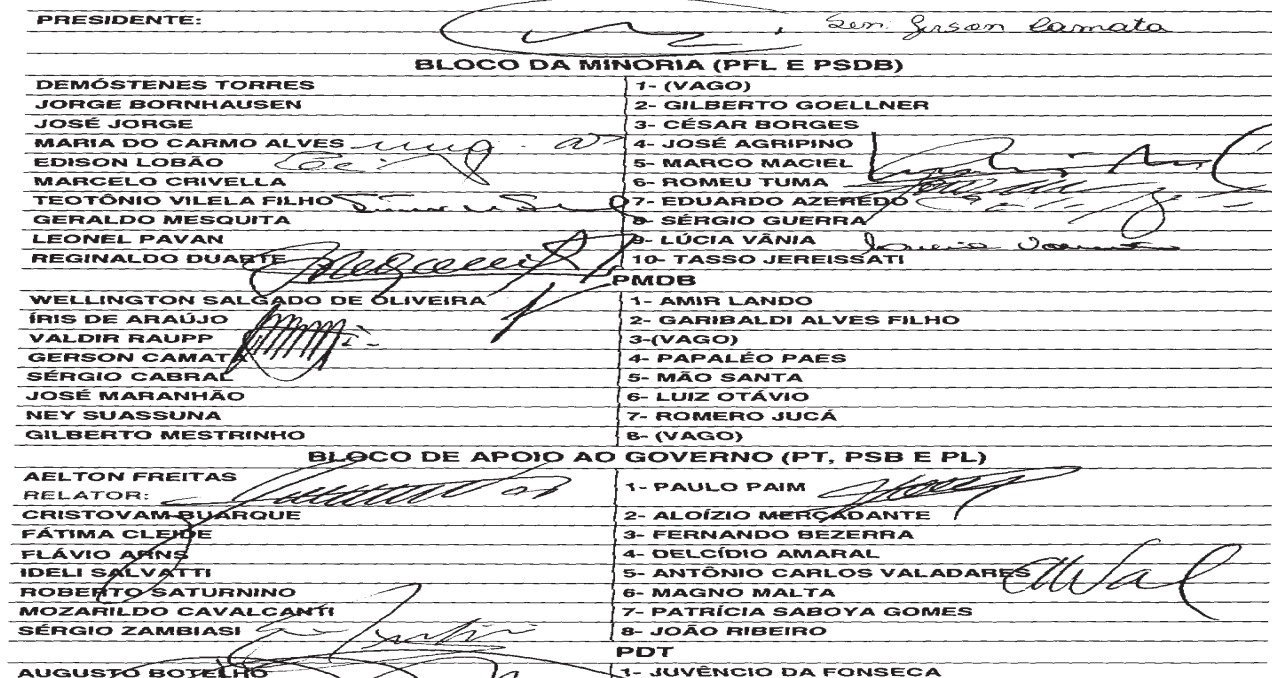 PRESIDENTE: Sen. Gerson Camata
BLOCO DA MINORIA (PFL E PSDB)
DEMÓSTENES TORRES 1- (VAGO)
JORGE BORNHAUSEN 2- GILBERTO GOELLNER
JOSÉ JORGE 3- CÉSAR BORGES
MARIA DO CARMO ALVES 4- JOSÉ AGRIPINO
EDISON LOBÃO 5- MARCO MACIEL
MARCELO CRIVELLA 6- ROMEU TUMA
TEOTÔNIO VILELA FILHO 7- EDUARDO AZEREDO
GERALDO MESQUITA 8- SÉRGIO GUERRA
LEONEL PAVAN 9- LÚCIA VÂNIA
REGINALDO DUARTE 10- TASSO JEREISSATI
PMDB
WELLINGTON SALGADO DE OLIVEIRA 1- AMIR LANDO
ÍRIS DE ARAÚJO 2- GARIBALDI ALVES FILHO
VALDIR RAUPP 3-(VAGO)
GERSON CAMATA 4- PAPALÉO PAES
SÉRGIO CABRAL 5- MÃO SANTA
JOSÉ MARANHÃO 6- LUIZ OTÁVIO
NEY SUASSUNA 7- ROMERO JUCÁ
GILBERTO MESTRINHO 8-(VAGO)
BLOCO DE APOIO AO GOVERNO (PT, PSB E PL)
AELTON FREITAS
RELATOR: 1- PAULO PAIM
CRISTOVAM BUARQUE 2- ALOÍZIO MERCADANTE
FÁTIMA CLEIDE 3- FERNANDO BEZERRA
FLÁVIO ARNS 4- DELCÍDIO AMARAL
IDELI SALVATTI 5- ANTÔNIO CARLOS VALADARES
ROBERTO SATURNINO 6- MAGNO MALTA
MOZARILDO CAVALCANTI 7- PATRÍCIA SABOYA GOMES
SÉRGIO ZAMBIASI 8- JOÃO RIBEIRO
PDT
AUGUSTO BOTELHO 1- JUVÊNCIO DA FONSECA